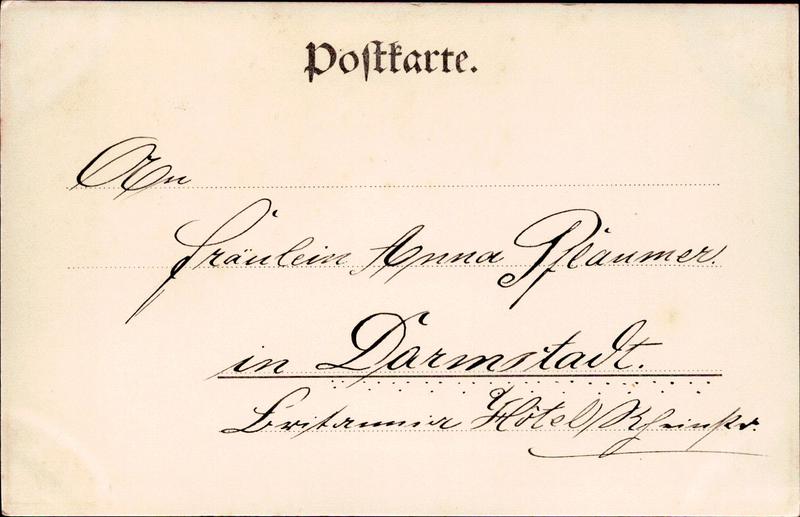 Postkarte.
An
Fräulein Anna Pfläumer.
in Darmstadt.
Britannia Hôtel Rheinstr.